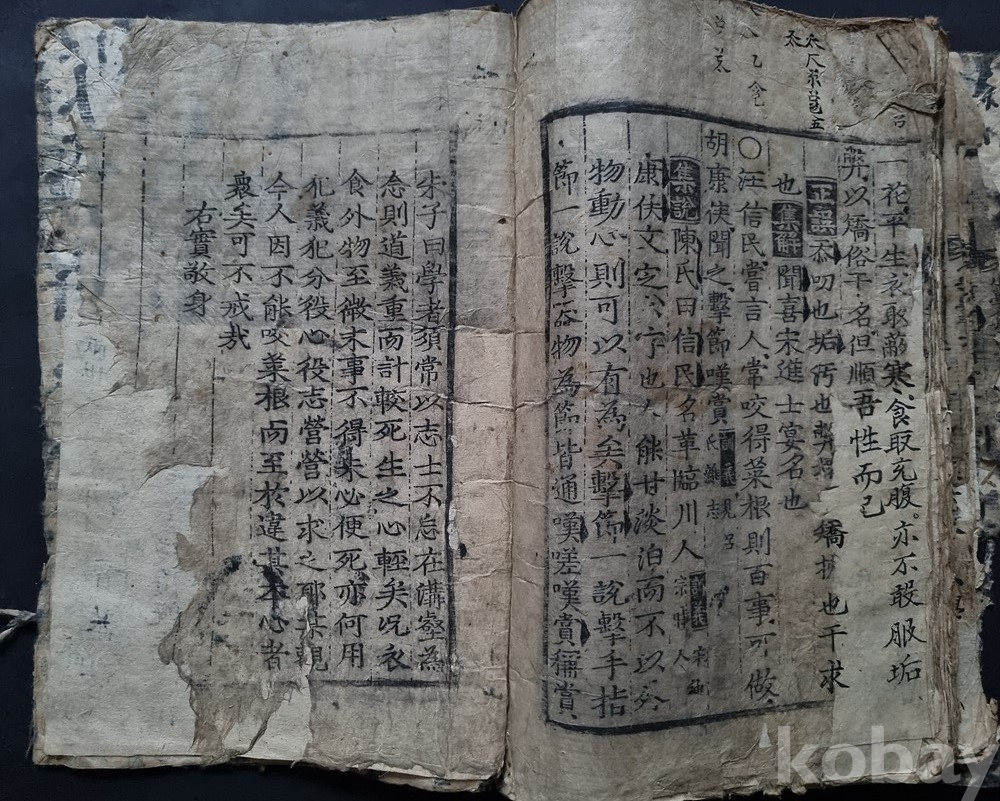 一花平生衣取蔽寒食取充腹。亦不敢服垢
弊以矯俗干名但順吾性而已
正誤 忝叨也垢汚也弊 矯 也干求
也 集解 聞喜宋進士宴名也
○汪信民嘗言人常咬得菜根則百事可做
胡康侯聞之擊節嘆賞 見呂氏雜志
集說 陳氏曰信民名革臨川人
康侯文定公字也人能甘淡泊而不以外
物動心則可以有為矣擊節一說擊手指
節一說擊器物為節皆通嘆嗟嘆賞稱賞
朱子曰學者須常以志士不忘在溝壑為
念則道義重而計較死生之心輕矣况衣
食外物至微末事不得未必便死亦何用
犯義犯分役心役志營營以求之耶某觀
今人因不能咬菜根而至於違其本心者
衆矣可不戒哉
右實敬身
kobay